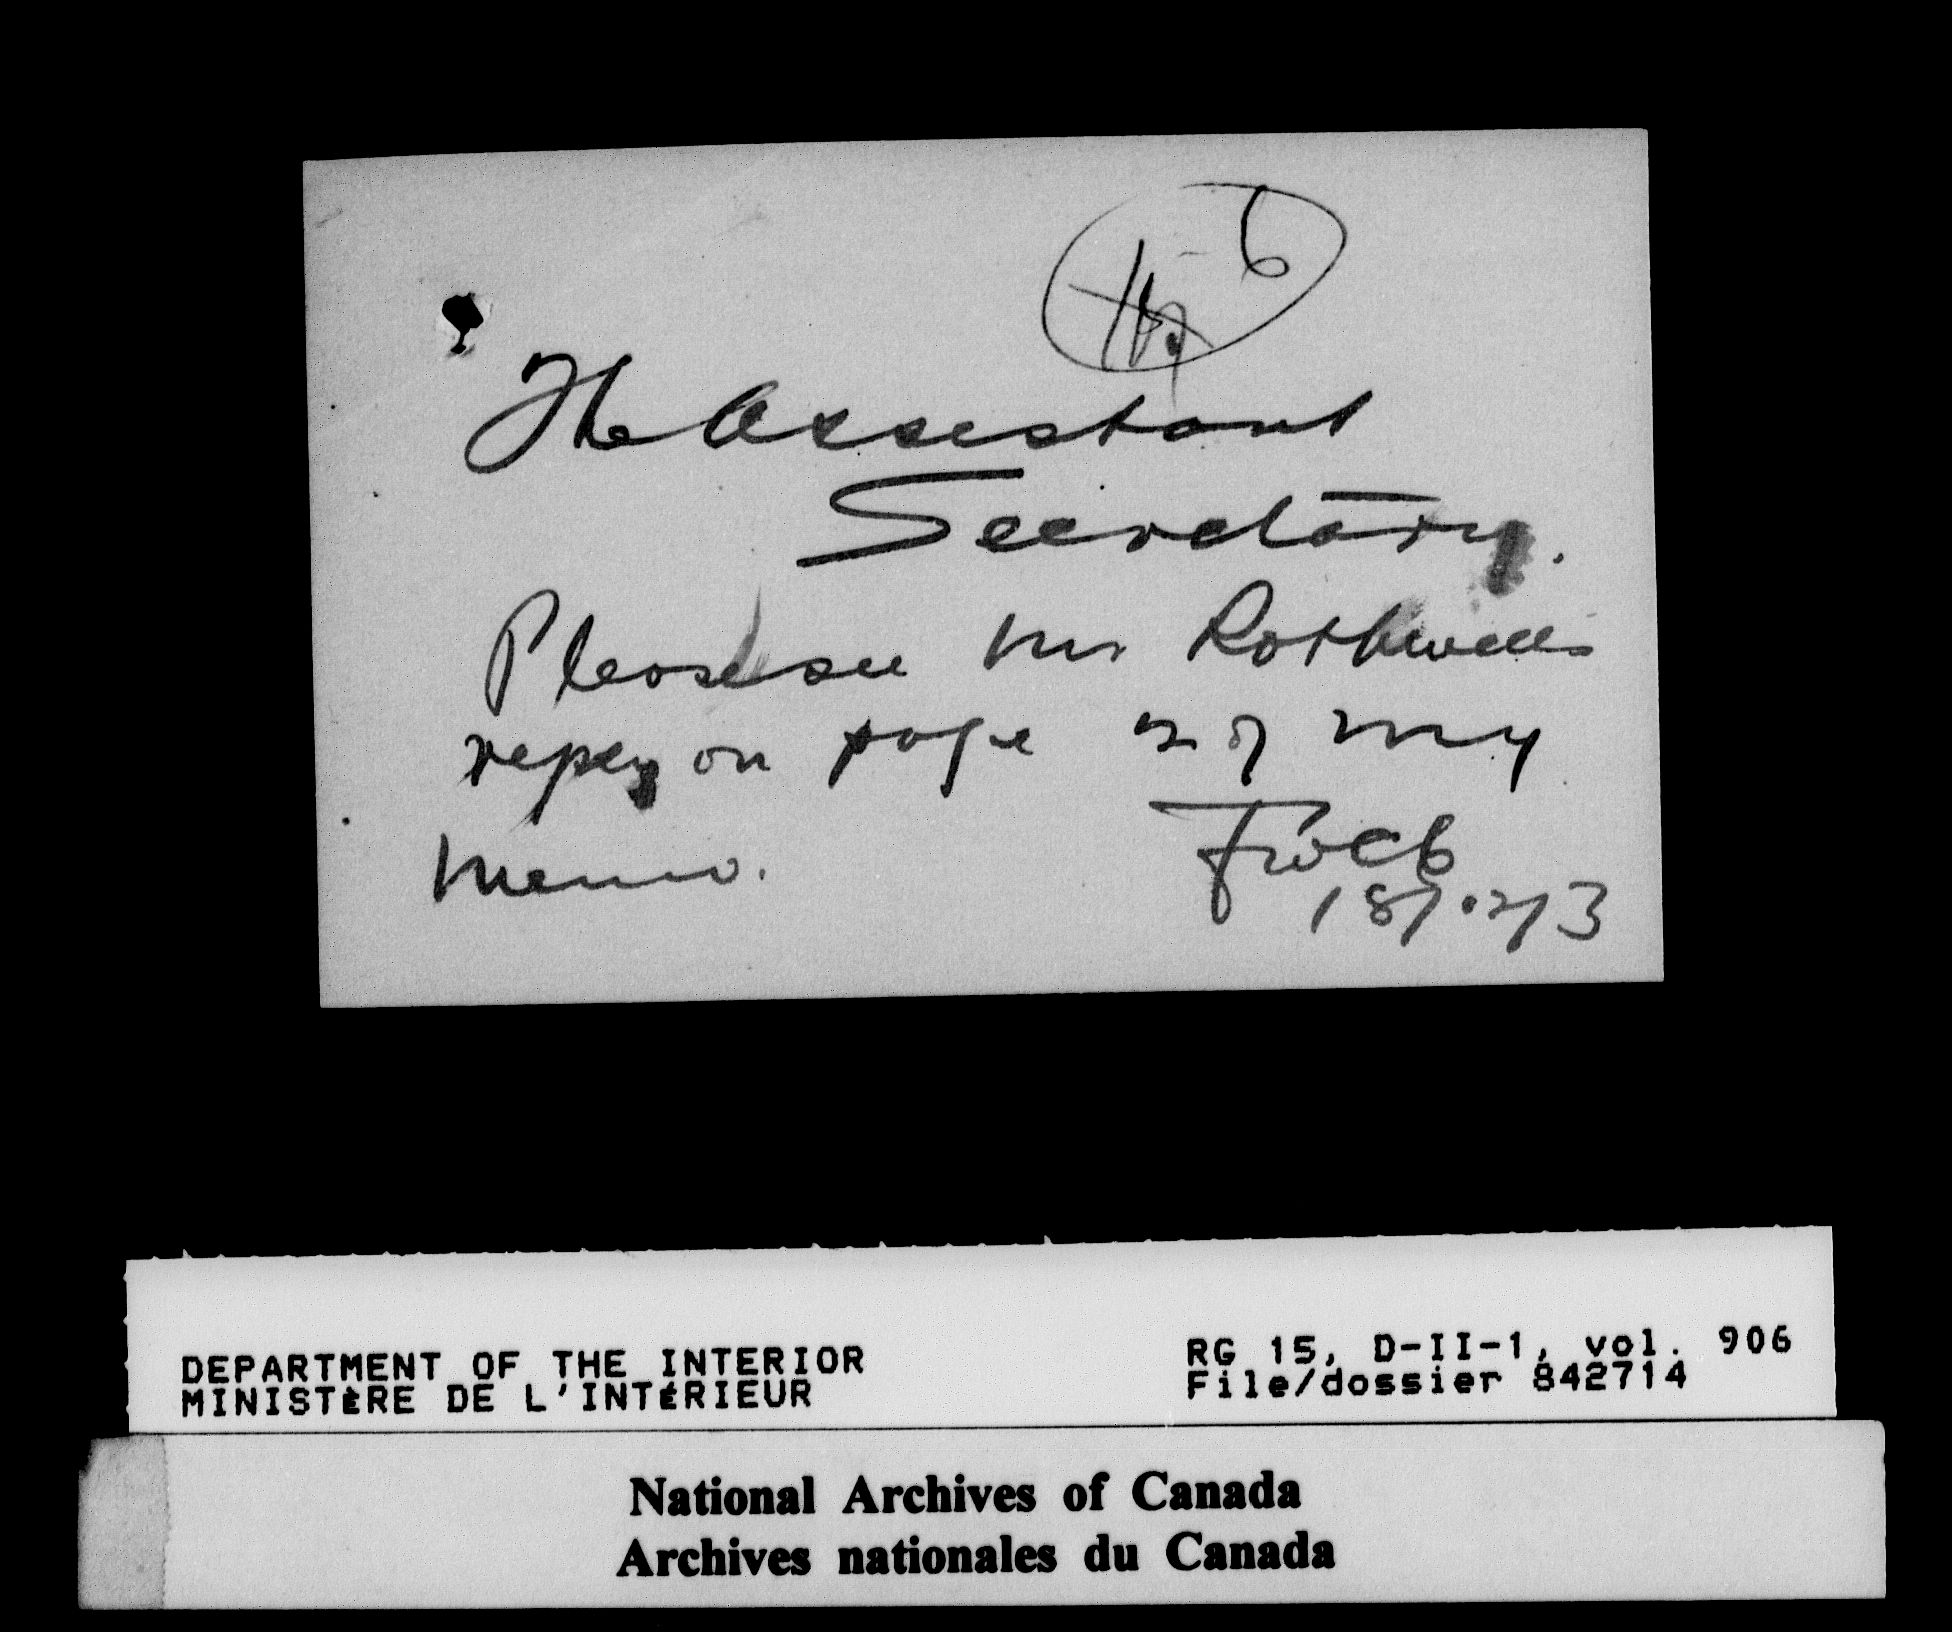 6
The Assistant
Secretary.
Please see Mr Rothwells
reply on page 2 of my
Memo.
FWCB
18/2/3
DEPARTMENT OF THE INTERIOR
MINISTÈRE DE L'INTÉRIEUR
RG 15, D-II-1, vol. 906
File/dossier 842714
National Archives of Canada
Archives nationales du Canada